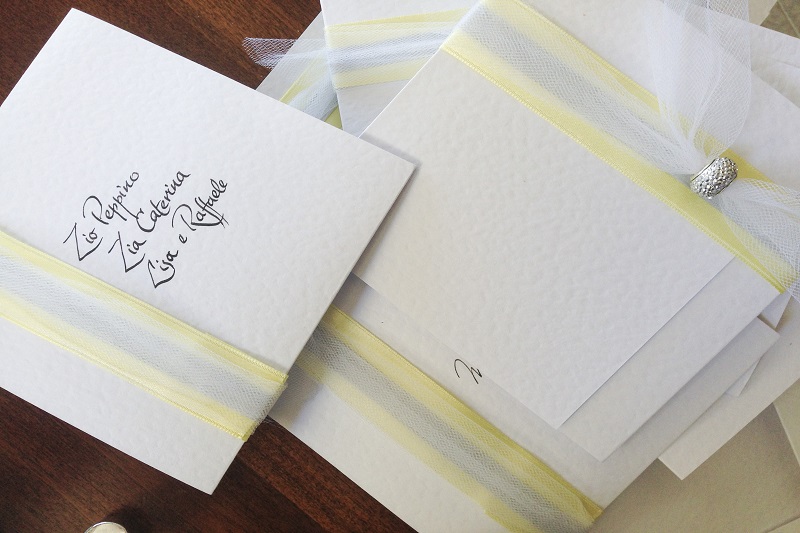 Zio Peppino
Zia Caterina
Lisa e Raffaele